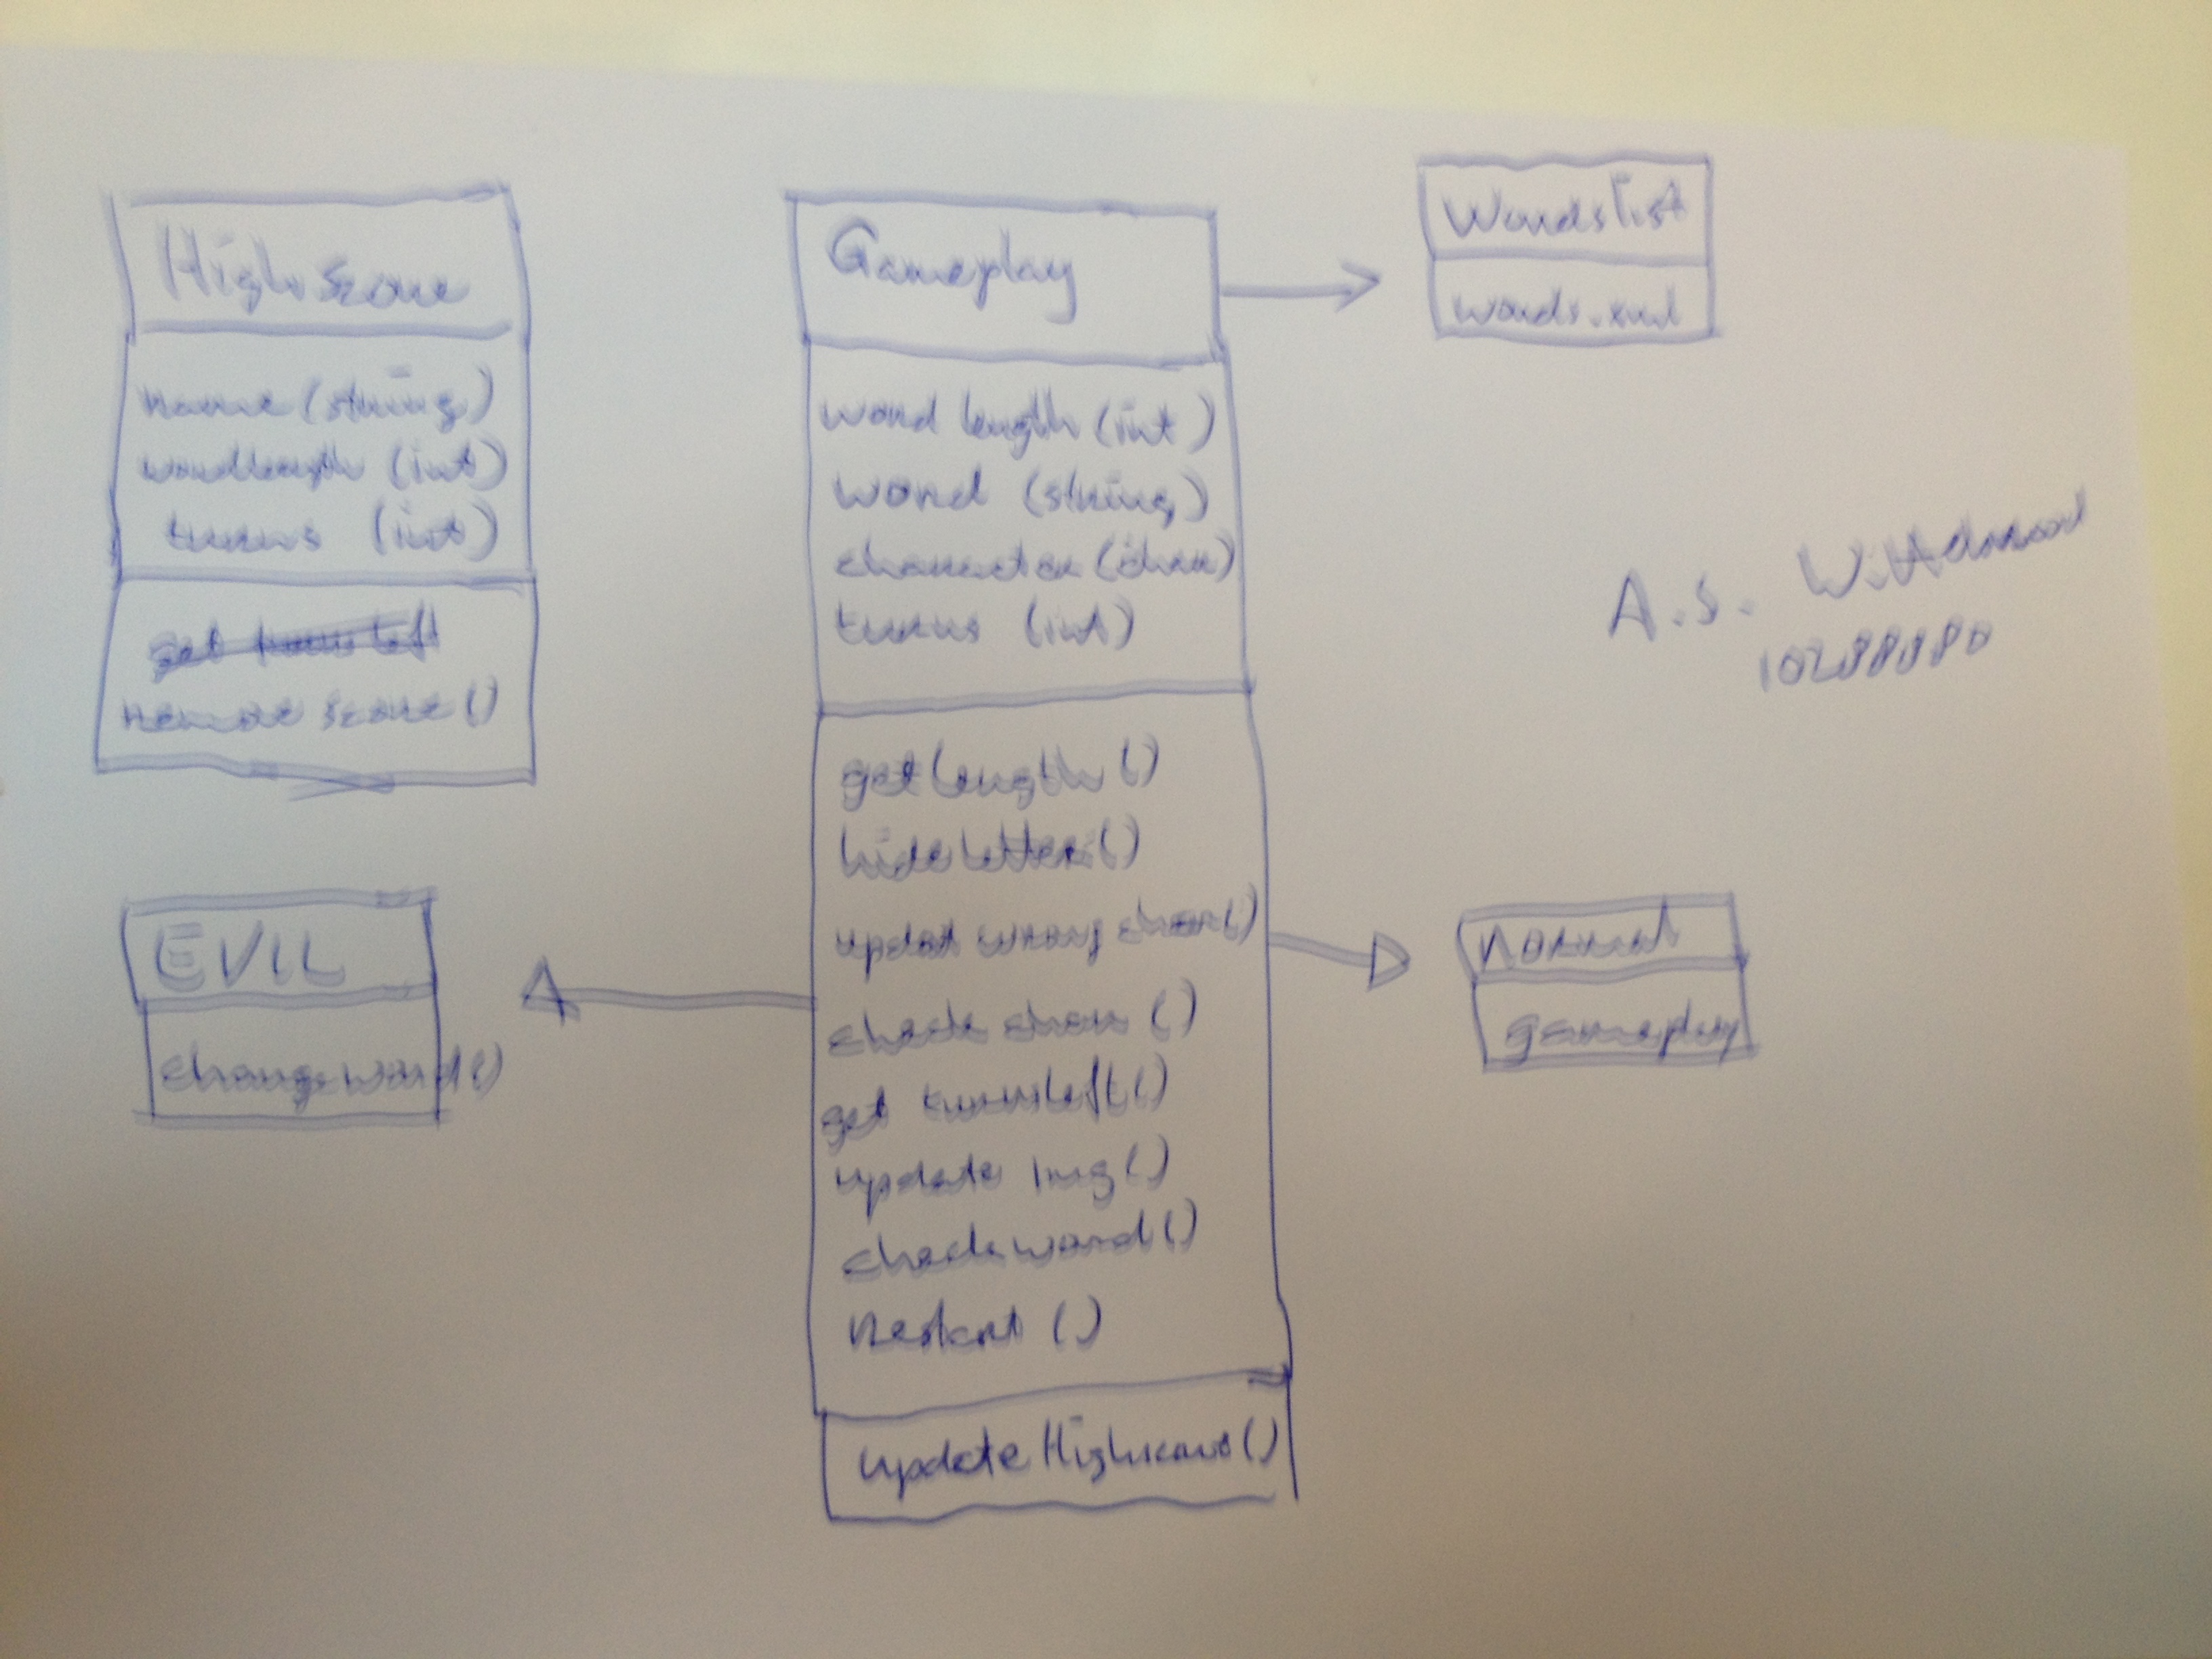 Highscore
name (string)
wordlength (int)
turns (int)
remove score ()
EVIL
change word ()
Gameplay
word length (int)
word (string)
character (char)
turns (int)
get length ()
hide letters ()
update wrong char ()
check char ()
get turns left ()
update img ()
check word ()
restart ()
update Highscore ()
Wordslist
words.xml
normal
gameplay
A.S.